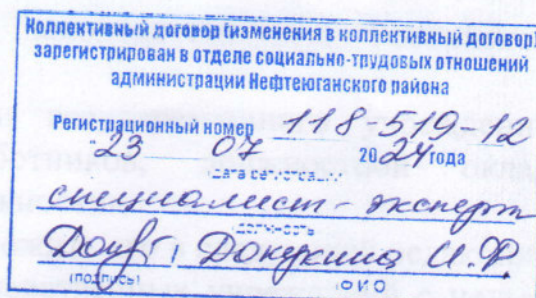 Коллективный договор (изменения в коллективный договор)
зарегистрирован в отделе социально-трудовых отношений
администрации Нефтеюганского района
Регистрационный номер 118-519-12
"23 07 2024 года
специалист - эксперт
должность
Докукина И.Ф.
(подпись) ФИО